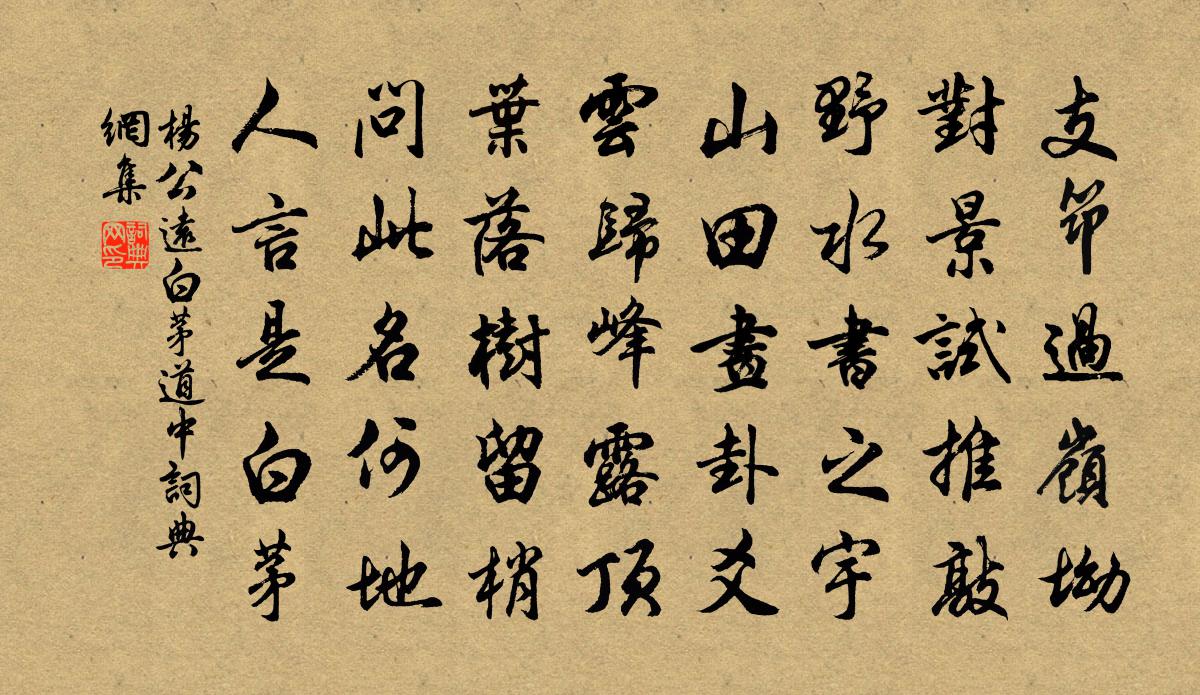 支笻過嶺坳
對景試推敲
野水書之字
山田畫卦爻
雲歸峰露頂
葉落樹留梢
問此名何地
人言是白茅
楊公遠白茅道中詞典
網集
詞典
网印